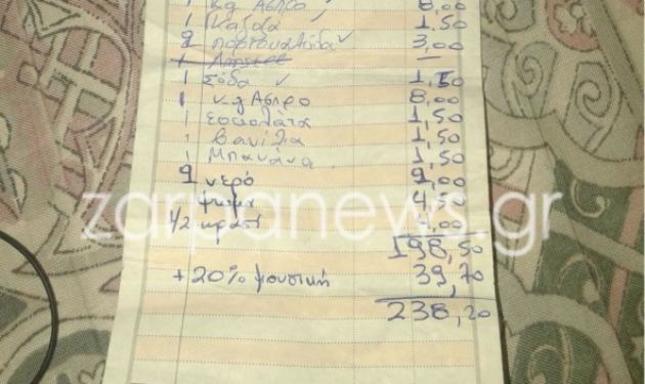 1 κg Άσπρο ✓ 8,00
1 Γκαζόζα ✓ 1,50
2 πορτοκαλάδα ✓ 3,00
1 —
1 Σόδα ✓ 1,50
1 κg Άσπρο 8,00
1 σοκολάτα 1,50
1 Βανίλια 1,50
1 Μπανάνα 1,50
2 νερό 2,00
ψωμί 4,50
1/2 κρασί 4,00
zarpanews.gr
198,50
+20% μουσική 39,70
238,20